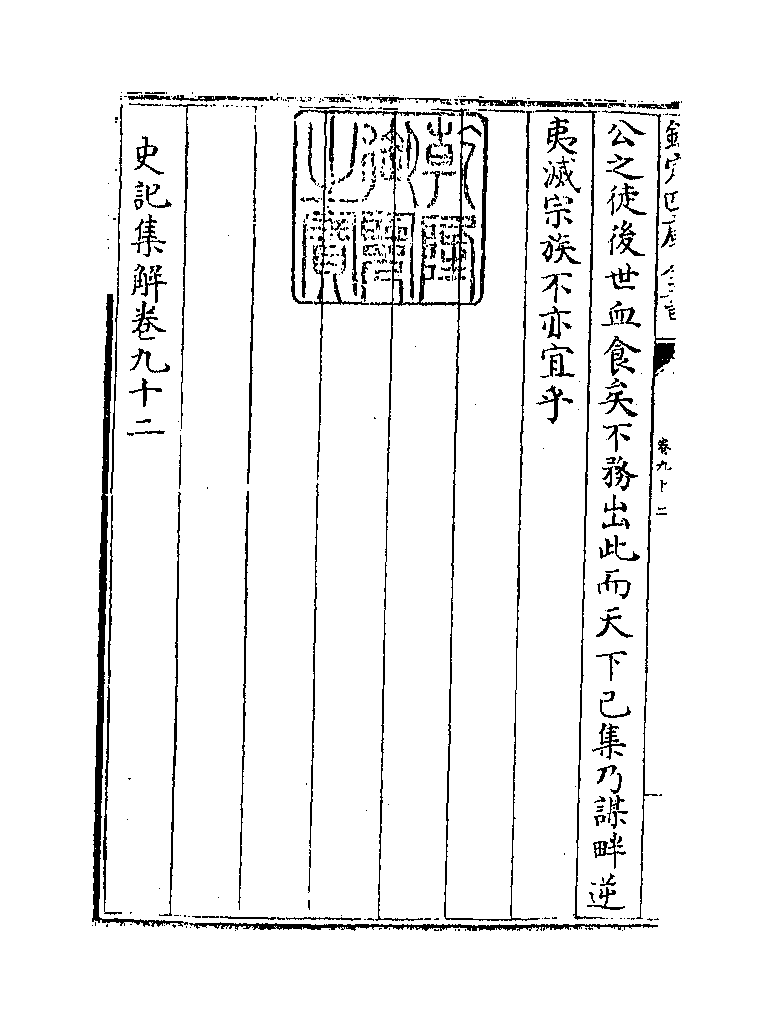 欽定四庫全書
卷九十二
公之徒後世血食矣不務出此而天下已集乃謀畔逆
夷滅宗族不亦宜乎
乾隆御覽之寶
史記集解卷九十二